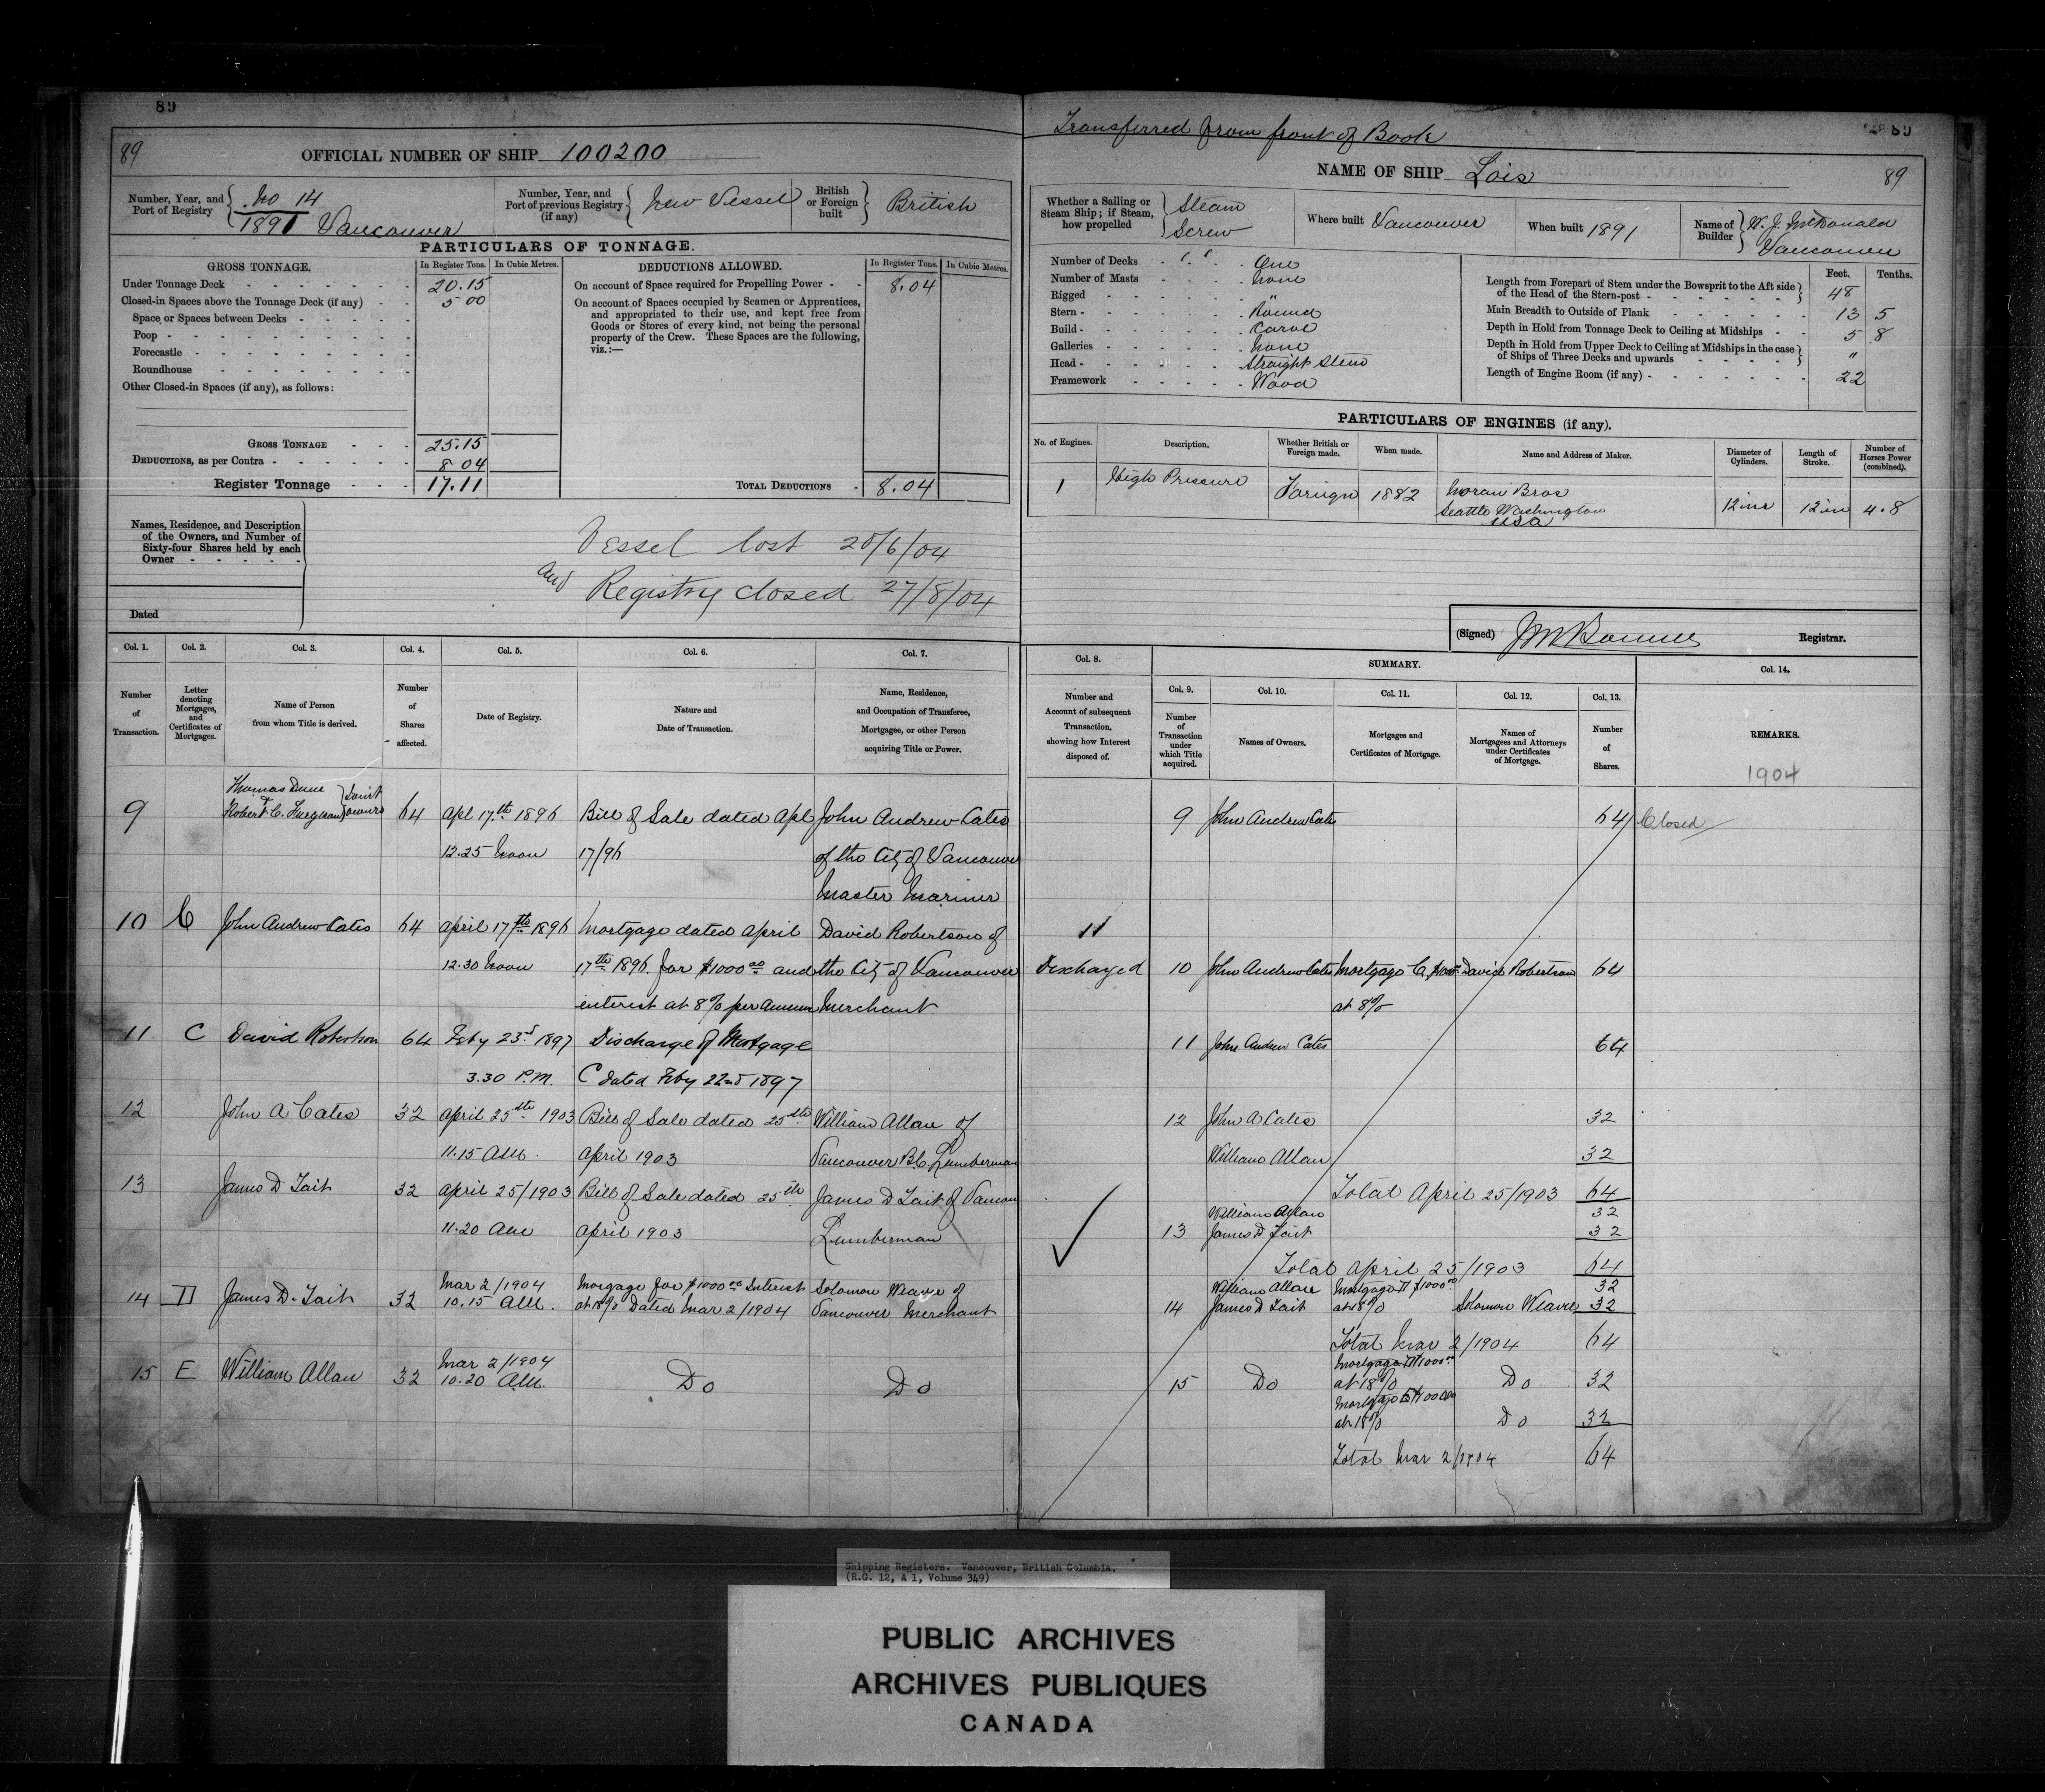 89
89
OFFICIAL NUMBER OF SHIP 100200
Number, Year, and Port of Registry { No 14
1891 Vancouver
Number, Year, and Port of previous Registry (if any) { New Vessel
British or Foreign built } British
PARTICULARS OF TONNAGE.
GROSS TONNAGE. In Register Tons. In Cubic Metres.
Under Tonnage Deck 20.15
Closed-in Spaces above the Tonnage Deck (if any) 5 00
Space or Spaces between Decks
Poop
Forecastle
Roundhouse
Other Closed-in Spaces (if any), as follows:
GROSS TONNAGE 25.15
DEDUCTIONS, as per Contra 8 04
Register Tonnage 17.11
DEDUCTIONS ALLOWED. In Register Tons. In Cubic Metres.
On account of Space required for Propelling Power 8.04
On account of Spaces occupied by Seamen or Apprentices,
and appropriated to their use, and kept free from
Goods or Stores of every kind, not being the personal
property of the Crew. These Spaces are the following,
viz.:—
TOTAL DEDUCTIONS 8.04
Names, Residence, and Description
of the Owners, and Number of
Sixty-four Shares held by each
Owner
Dated
Vessel lost 20/6/04
and Registry closed 27/8/04
Col. 1. Col. 2. Col. 3. Col. 4. Col. 5. Col. 6. Col. 7.
Number of Transaction.
Letter denoting Mortgages, and Certificates of Mortgages.
Name of Person from whom Title is derived.
Number of Shares affected.
Date of Registry.
Nature and Date of Transaction.
Name, Residence, and Occupation of Transferee, Mortgagee, or other Person acquiring Title or Power.
9 Thomas Dunn & Robert C. Furguson } Joint owners 64 Apl 17th 1896 Bill of Sale dated Apl John Andrew Cates
12.25 Noon 17/96 of the City of Vancouver
Master Mariner
10 C John Andrew Cates 64 April 17th 1896 Mortgage dated April David Robertson of
12.30 Noon 17th 1896 for $1000 00 and the City of Vancouver
interest at 8% per annum Merchant
11 C David Robertson 64 Feby 23rd 1897 Discharge of Mortgage
3.30 P.M. C dated Feby 22nd 1897
12 John A Cates 32 April 25th 1903 Bill of Sale dated 25th William Allan of
11.15 AM. April 1903 Vancouver B.C. Lumberman
13 James D Tait 32 April 25/1903 Bill of Sale dated 25th James D Tait of Vancou
11.20 AM April 1903 Lumberman
14 D James D. Tait 32 Mar 2/1904 Morgage for $1000 00 Interest Solomon Weaver of
10.15 AM. at 18% Dated Mar 2/1904 Vancouver Merchant
15 E William Allan 32 Mar 2/1904
10.20 AM. Do Do
Transferred from front of Book
89
NAME OF SHIP Lois 89
Whether a Sailing or Steam Ship; if Steam, how propelled } Steam
Screw
Where built Vancouver
When built 1891
Name of Builder } W. J. McDonald
Vancouver
Number of Decks One
Number of Masts None
Rigged "
Stern Round
Build Carvel
Galleries None
Head Straight Stem
Framework Wood
Feet. Tenths.
Length from Forepart of Stem under the Bowsprit to the Aft side
of the Head of the Stern-post 48
Main Breadth to Outside of Plank 13 5
Depth in Hold from Tonnage Deck to Ceiling at Midships 5 8
Depth in Hold from Upper Deck to Ceiling at Midships in the case
of Ships of Three Decks and upwards "
Length of Engine Room (if any) 22
PARTICULARS OF ENGINES (if any).
No. of Engines. Description. Whether British or Foreign made. When made. Name and Address of Maker. Diameter of Cylinders. Length of Stroke. Number of Horses Power (combined).
1 High Pressure Foreign 1882 Moran Bros
Seattle Washington
USA 12 ins 12 in 4.8
(Signed) Registrar.
Col. 8. SUMMARY. Col. 14.
Col. 9. Col. 10. Col. 11. Col. 12. Col. 13.
Number and Account of subsequent Transaction, showing how Interest disposed of.
Number of Transaction under which Title acquired.
Names of Owners.
Mortgages and Certificates of Mortgage.
Names of Mortgagees and Attorneys under Certificates of Mortgage.
Number of Shares.
REMARKS.
1904
9 John Andrew Cates 64 Closed
11
Discharged 10 John Andrew Cates Mortgage C David Robertson 64
at 8%
11 John Andrew Cates 64
12 John A Cates 32
William Allan 32
Total April 25/1903 64
William Allan 32
13 James D Tait 32
Total April 25/1903 64
William Allan Mortgage D $1000 00 32
14 James D Tait at 18% Solomon Weaver 32
Total Mar 2/1904 64
Mortgage D $1000 00
15 Do at 18% Do 32
Mortgage E $1000 00
at 18% Do 32
Total Mar 2/1904 64
Shipping Registers. Vancouver, British Columbia.
(R.G. 12, A 1, Volume 349)
PUBLIC ARCHIVES
ARCHIVES PUBLIQUES
CANADA